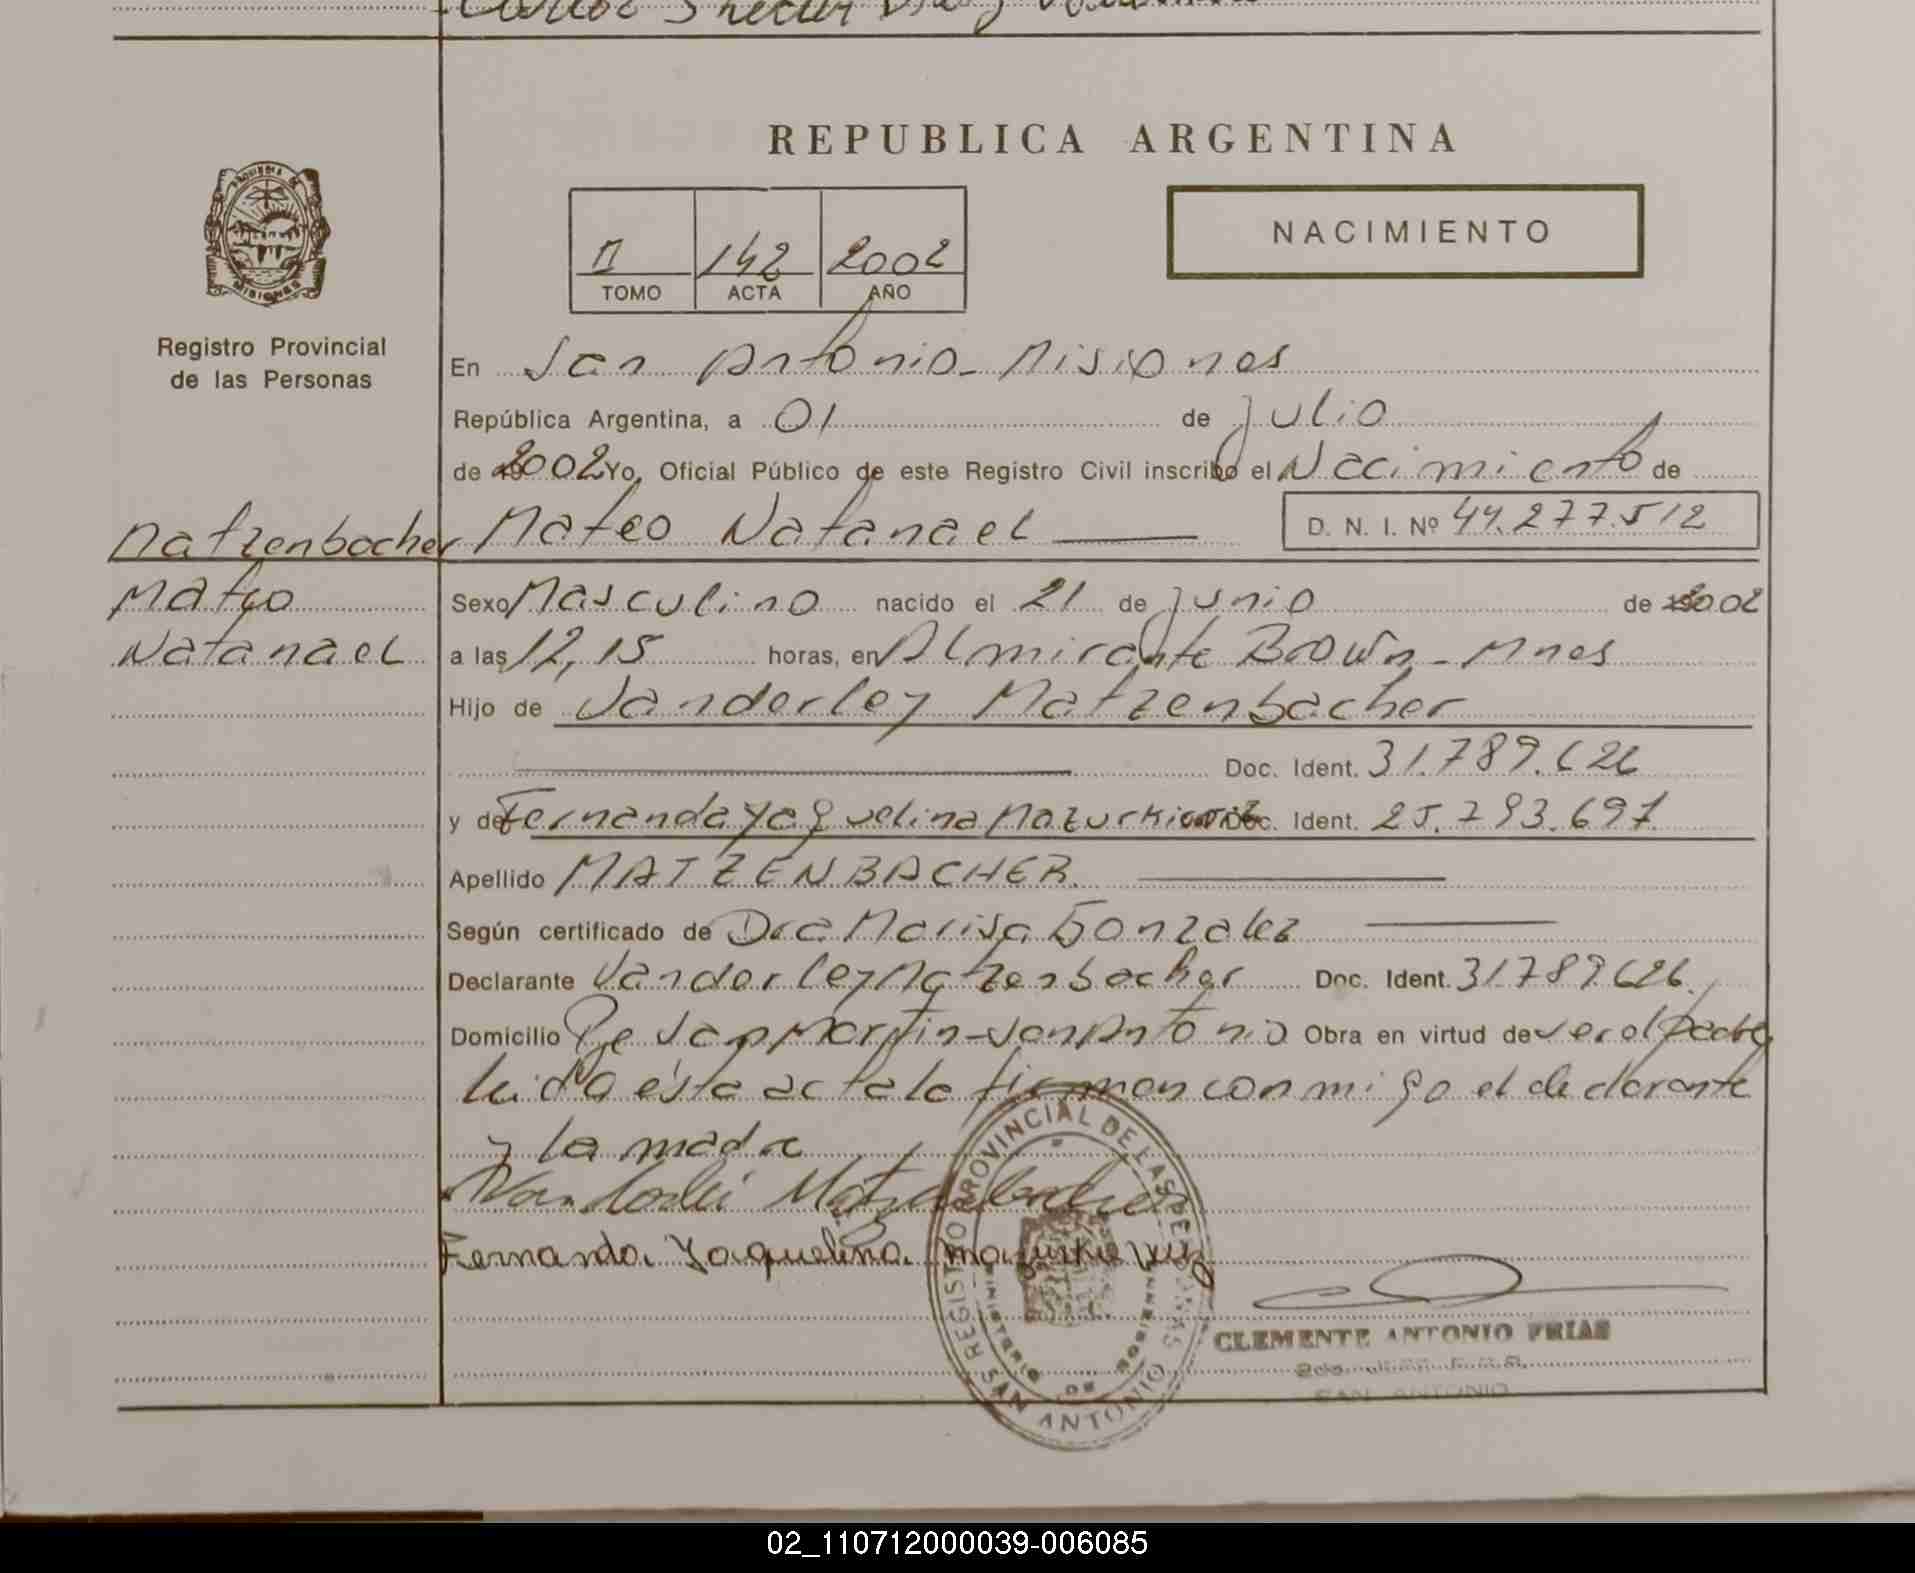 Carlos
REPUBLICA ARGENTINA
PROVINCIA DE
MISIONES
Registro Provincial
de las Personas
II 142 2002
TOMO ACTA AÑO
NACIMIENTO
En San Antonio - Misiones
República Argentina, a 01 de Julio
de 2002 Yo, Oficial Público de este Registro Civil inscribo el Nacimiento de
Matzenbacher Mateo Natanael D. N. I. Nº 44.277.512
Mateo Sexo Masculino nacido el 21 de junio de 2002
Natanael a las 12,15 horas, en Almirante Brown - Mnes
Hijo de Vanderley Matzenbacher
Doc. Ident. 31.789.626
y de Fernanda Yaquelina Mazurkievicz Doc. Ident. 25.793.697
Apellido MATZENBACHER
Según certificado de Dra Marisa Gonzalez
Declarante Vanderley Matzenbacher Doc. Ident. 31.789.626
Domicilio Pje San Martin - San Antonio Obra en virtud de ser el Padre
leida ésta acta la firman conmigo el declarante
y la madre
Matzenbacher
Fernanda Yaquelina
REGISTRO PROVINCIAL DE LAS PERSONAS
MINISTERIO DE GOBIERNO
SAN ANTONIO
CLEMENTE ANTONIO FRIAS
SAN ANTONIO
02_110712000039-006085